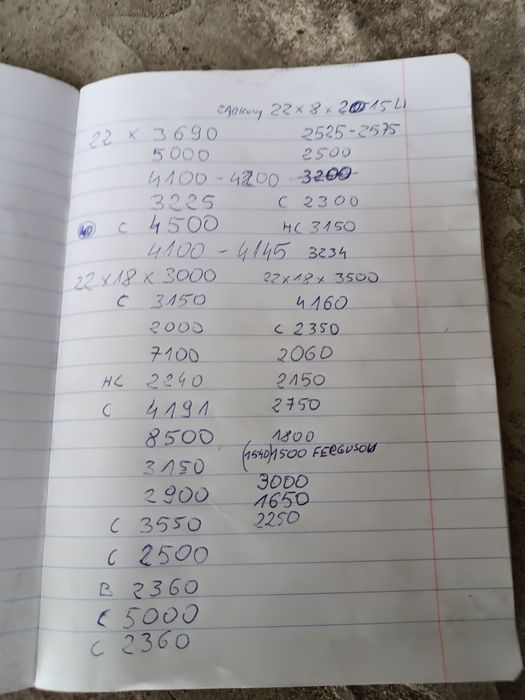 22 × 8 × 2015 Li
22 × 3690 2525-2575
5000 2500
4100-4200 3200
3225 C 2300
C 4500 HC 3150
4100-4145 3234
22×18×3000 22×18×3500
C 3150 4160
2000 C 2350
7100 2060
HC 2240 2150
C 4191 2750
8500 1800
3150 (1540)1500 FERGUSON
2900 3000
1650
C 3550 2250
C 2500
B 2360
C 5000
C 2360